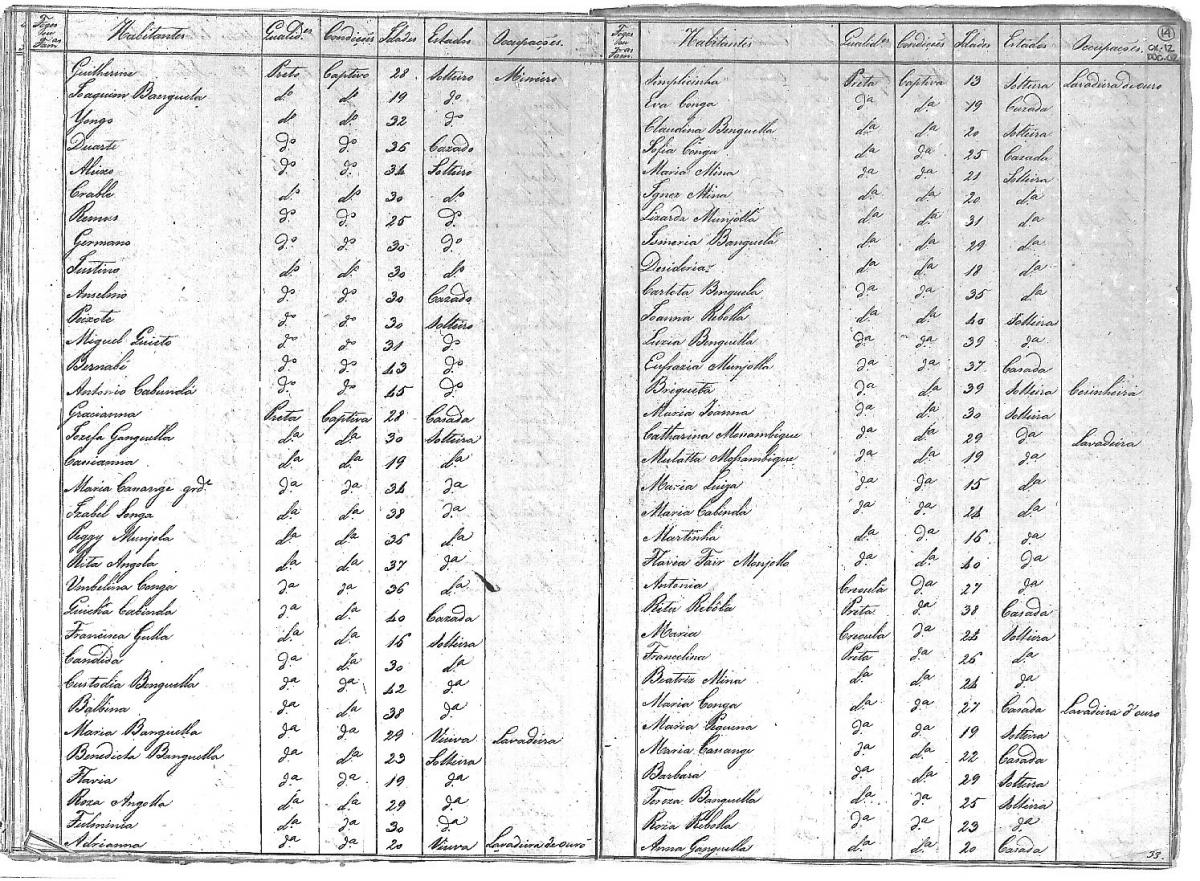 Fogos ou Fam.as Habitantes Qualid.es Condições Idades Estados Occupações.
Guilherme Preto Captivo 28 Solteiro Mineiro
Joaquim Banguela d.o d.o 19 d.o
Yongo d.o d.o 32 d.o
Duarte d.o d.o 36 Cazado
Aleixo d.o d.o 34 Solteiro
Crable d.o d.o 30 d.o
Remus d.o d.o 25 d.o
Germano d.o d.o 30 d.o
Justino d.o d.o 30 d.o
Anselmo d.o d.o 30 Cazado
Peixote d.o d.o 30 Solteiro
Miguel d.o d.o 31 d.o
Bernabé d.o d.o 43 d.o
Antonio Cabundá d.o d.o 45 d.o
Gracianna Preta Captiva 28 Casada
Jozefa Ganguella d.a d.a 30 Solteira
Cassianna d.a d.a 19 d.a
Maria Cassange grd.e d.a d.a 34 d.a
Izabel Songa d.a d.a 38 d.a
Peggy Munjola d.a d.a 36 d.a
Rita Angola d.a d.a 37 d.a
Umbelina Conga d.a d.a 36 d.a
Cabinda d.a d.a 40 Cazada
Francisca Gulla d.a d.a 16 Solteira
Candida d.a d.a 30 d.a
Custodia Benguella d.a d.a 42 d.a
Balbina d.a d.a 38 d.a
Maria Banguella d.a d.a 29 Viuva Lavadeira
Benedicta Banguella d.a d.a 23 Solteira
Flavia d.a d.a 19 d.a
Roza Angolla d.a d.a 29 d.a
Fulminia d.a d.a 30 d.a
Adrianna d.a d.a 20 Viuva Lavadeira de ouro
14
CX-12
DOC-02
Fogos ou Fam.as Habitantes Qualid.es Condições Idades Estados Occupações.
Simplicinha Preta Captiva 13 Solteira Lavadeira de ouro
Eva Conga d.a d.a 19 Cazada
Claudina Benguella d.a d.a 20 Solteira
Sofia Conga d.a d.a 25 Cazada
Maria Mina d.a d.a 21 Solteira
Ignez Mina d.a d.a 20 d.a
Lizarda Munjolla d.a d.a 31 d.a
Ismeria Banguela d.a d.a 29 d.a
Desideria d.a d.a 18 d.a
Carlota Benguela d.a d.a 35 d.a
Joanna Rebolla d.a d.a 40 Solteira
Luzia Benguella d.a d.a 39 d.a
Eufrazia Munjolla d.a d.a 37 Casada
Briqueta d.a d.a 39 Solteira Cosinheira
Maria Joanna d.a d.a 30 Solteira
Catharina Mossambique d.a d.a 29 d.a Lavadeira
Mulatta Mossambique d.a d.a 19 d.a
Maria Luiza d.a d.a 15 d.a
Maria Cabinda d.a d.a 24 d.a
Martinha d.a d.a 16 d.a
Flavia Fair Monjollo d.a d.a 40 d.a
Antonia Creoula d.a 27 d.a
Rita Rebôla Preta d.a 38 Casada
Maria Creoula d.a 24 Solteira
Francelina Preta d.a 26 d.a
Beatriz Mina d.a d.a 24 d.a
Maria Conga d.a d.a 27 Casada Lavadeira d'ouro
Maria Pequena d.a d.a 19 Solteira
Maria Cassange d.a d.a 22 Casada
Barbara d.a d.a 29 Solteira
Tereza Banguella d.a d.a 25 Solteira
Roza Rebolla d.a d.a 23 d.a
Anna Ganguella d.a d.a 20 Casada
33.